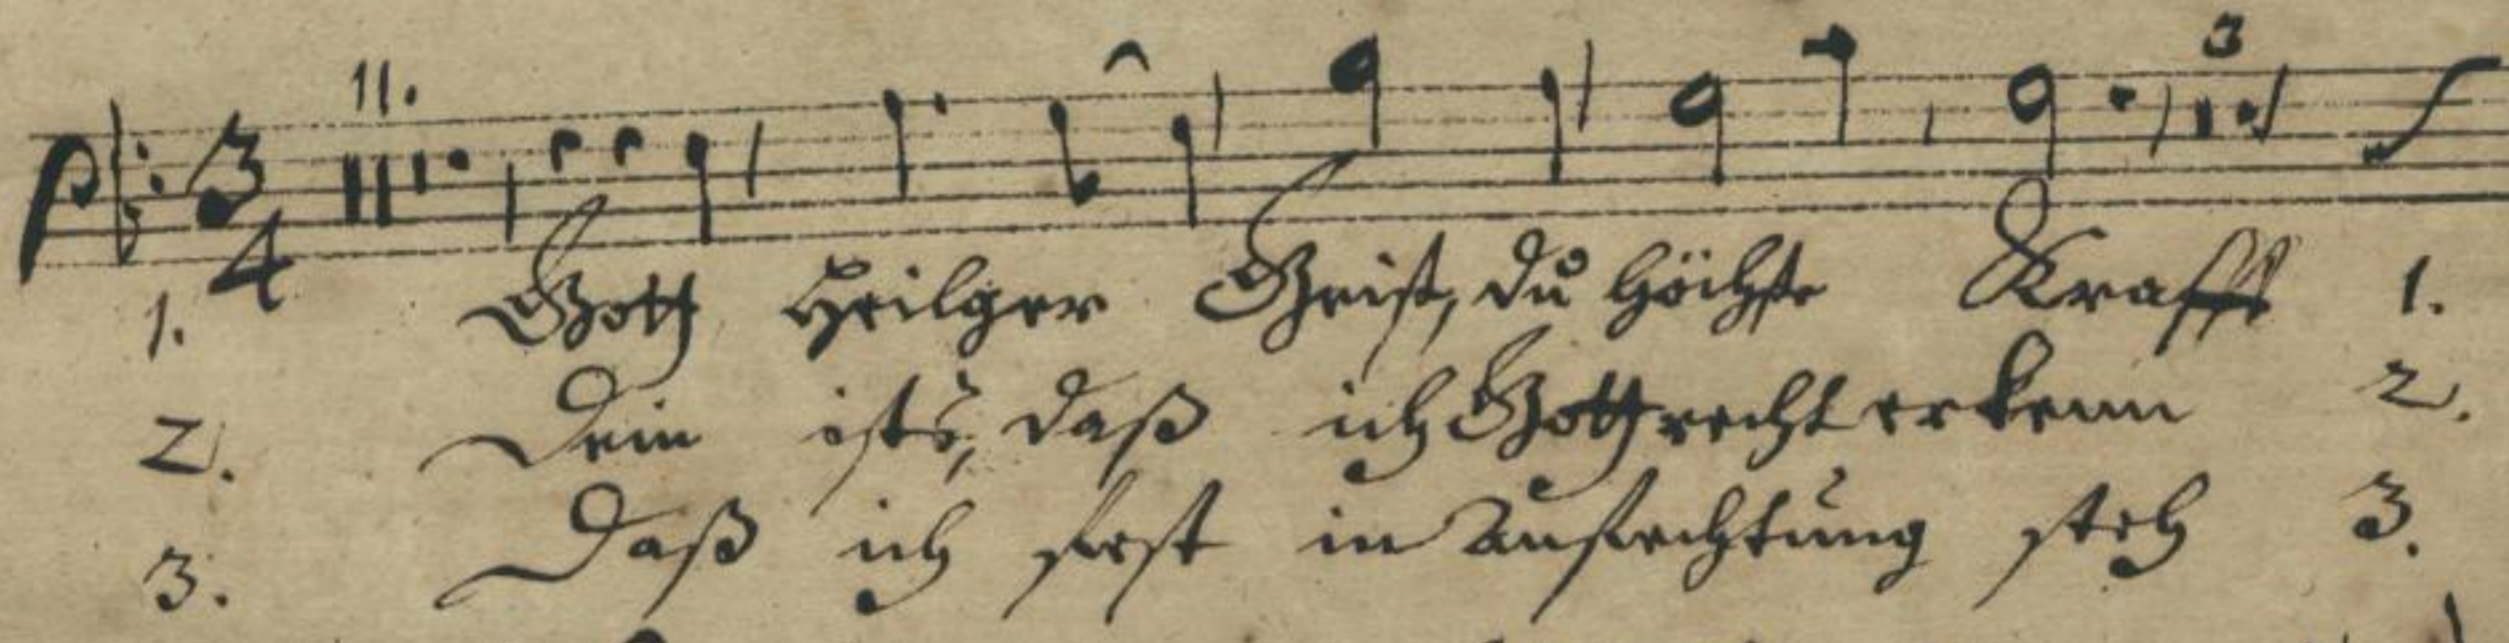 11. 3
3
4
1. Gott Heilger Geist, du höchste Krafft 1.
2. Dein ists, daß ich Gott recht erkenn 2.
3. Daß ich fest in Anfechtung steh 3.